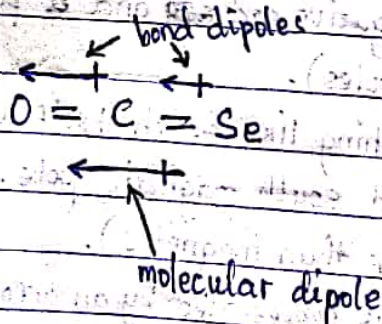 bond dipoles
O = C = Se
molecular dipole